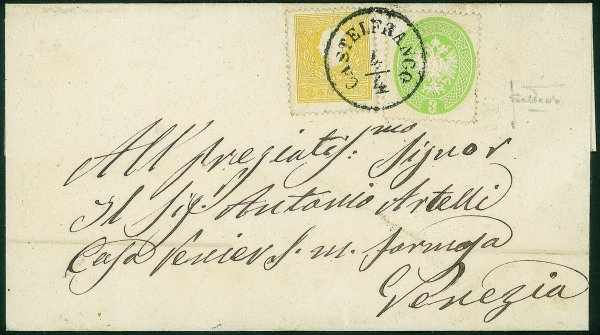 CASTELFRANCO
4/4
3
All pregiatis.mo Signor
Il Sig. Antonio Artelli
Casa Venier S. m. formosa
Venezia